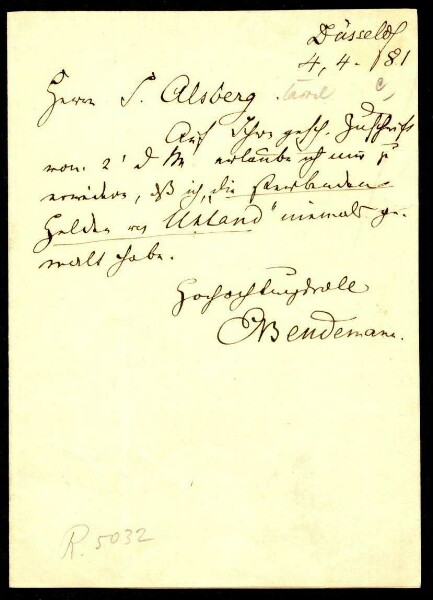 Düsseldf
4, 4. 81
Herrn S. Alsberg.
Auf Ihre gesch. Zuschrift
vom 2' d M erlaube ich mir z
erwidern, dß ich „die sterbenden
Helden v Uhland" niemals ge-
malt habe.
Hochachtungsvoll
EBendemann.
R. 5032